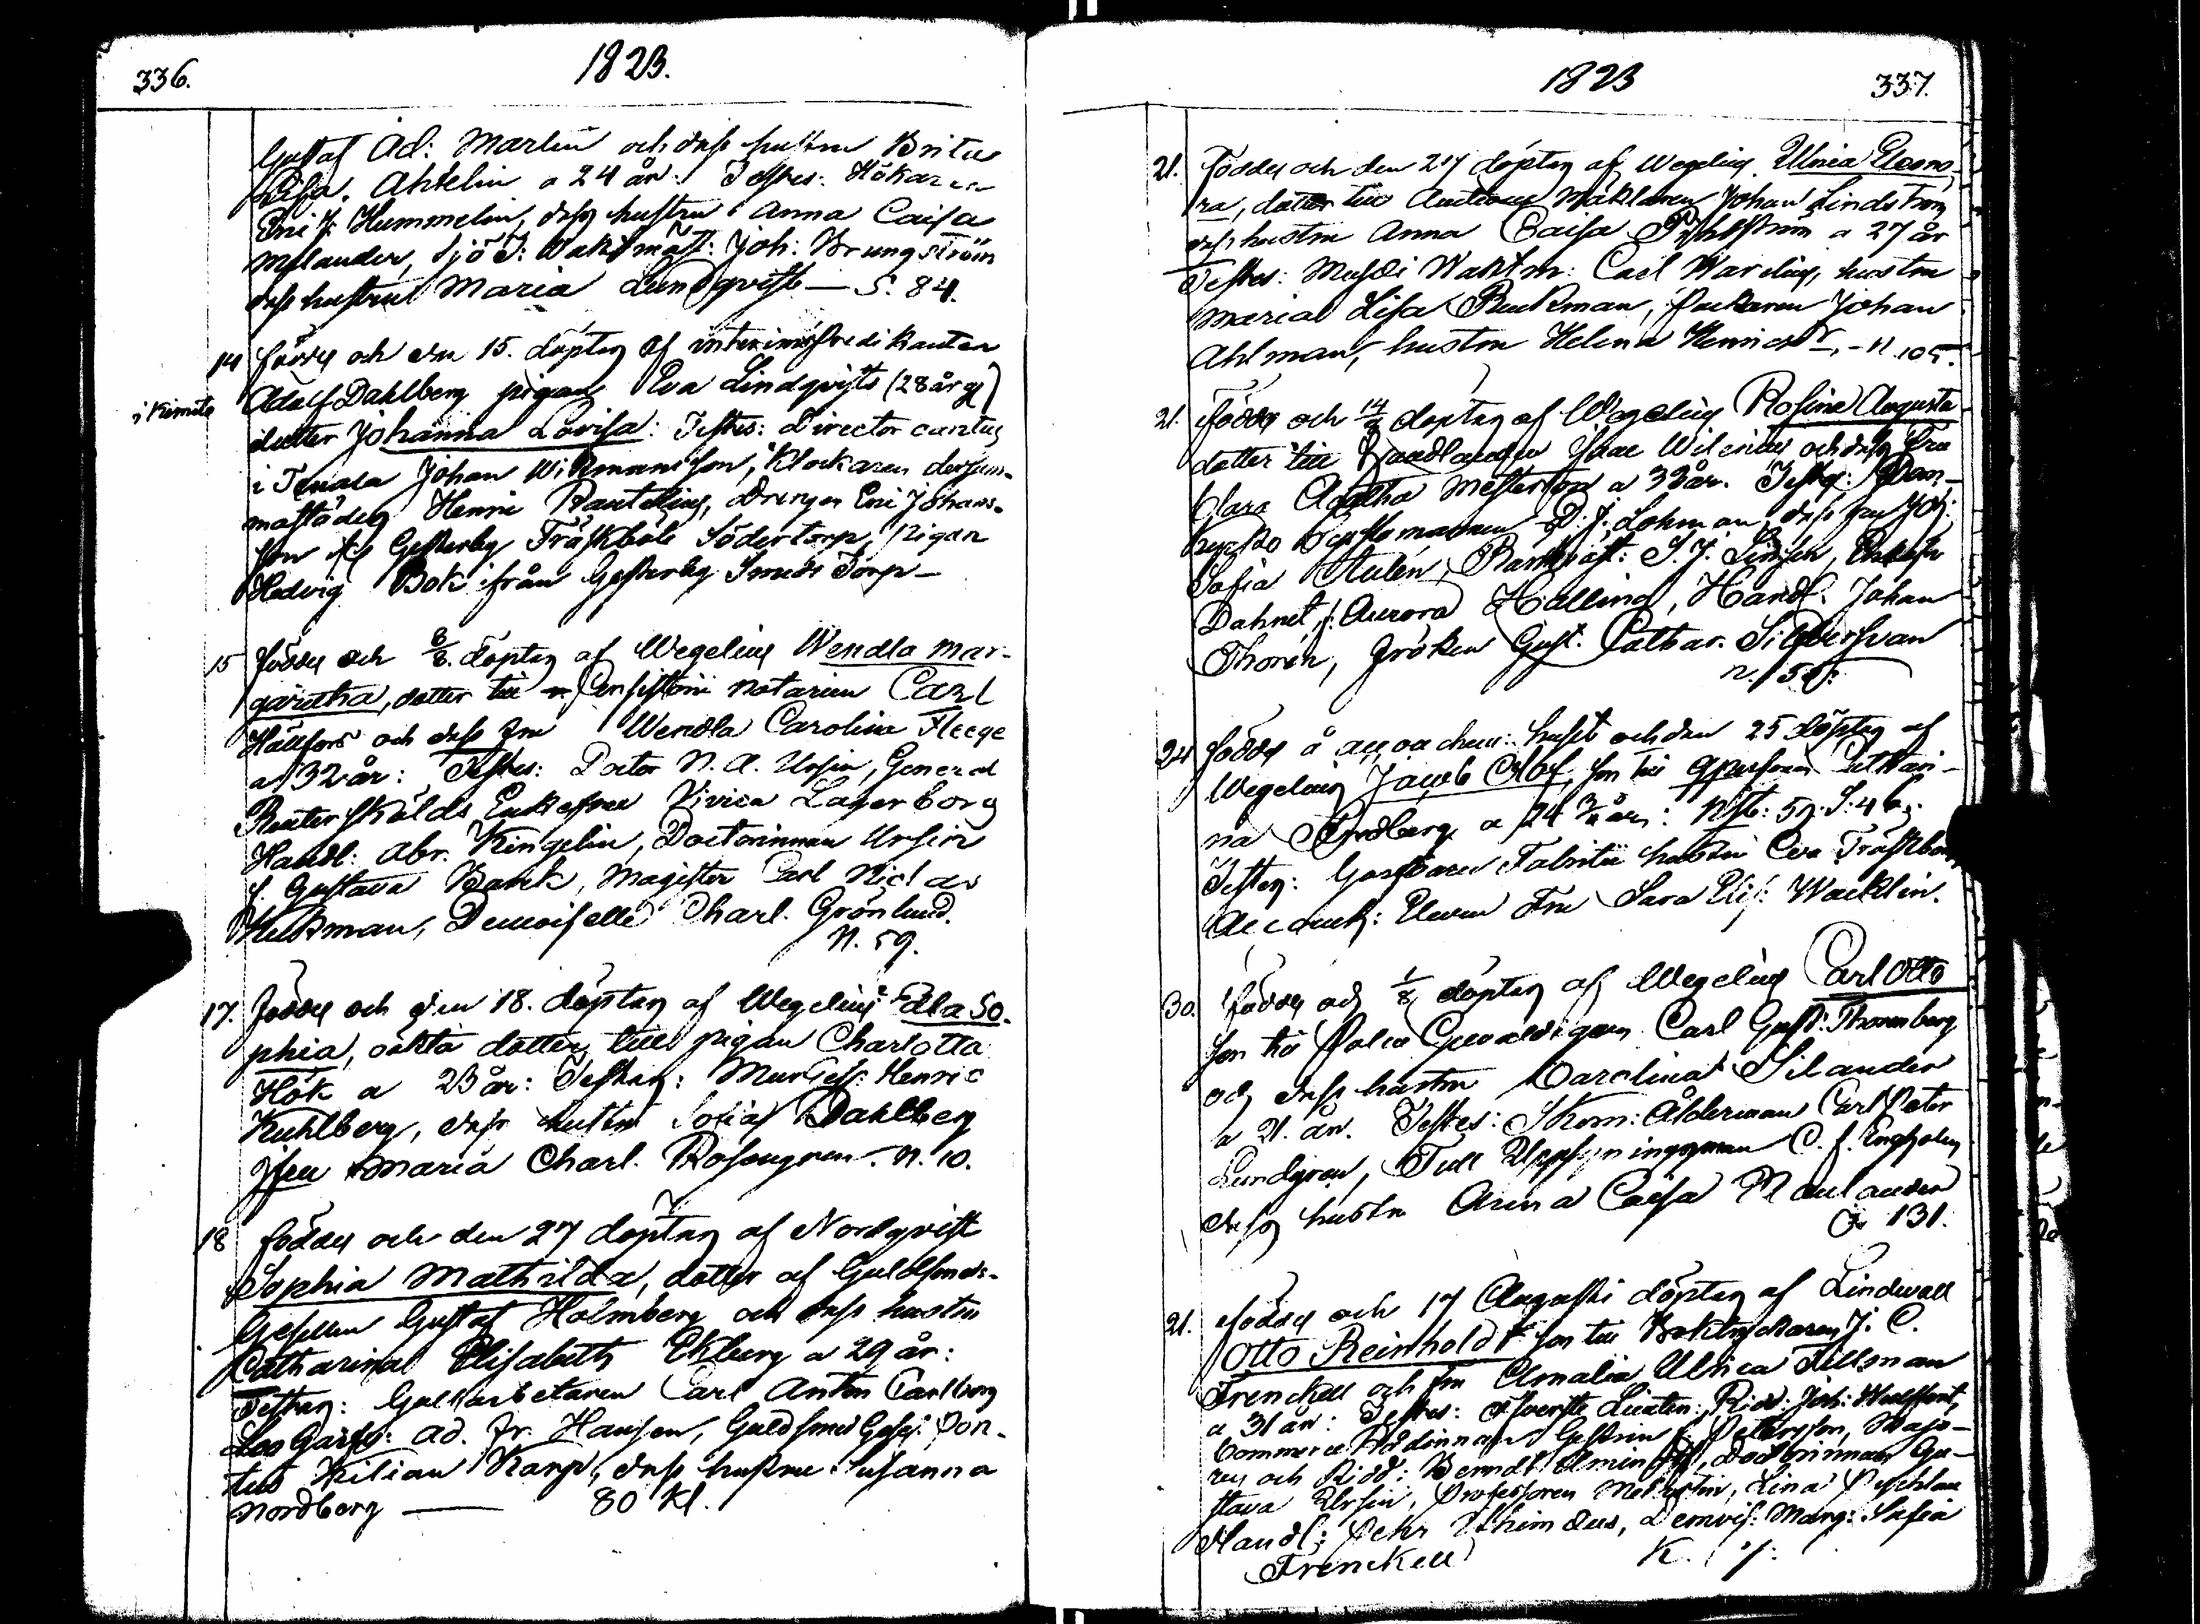 336.
1823.
Gustaf Ad: Marlin och dess hustru Brita
Lisa Ahlelin a 24 år. Testes: Hökaren
Eric J. Hummelin, dess hustru Anna Caisa
Melander, Sjö T: Waktmäst: Joh: Brungström
dess hustru Maria Lundqvist — S. 84.
14 föddes och den 15. döptes af interimspredikanten
i Kimito Adolf Dahlberg pigans Eva Lindqvists (28 år gl)
dotter Johanna Lovisa: Testes: Director cantus
i Tenala Johan Wikmansson, Klockaren dersam-
mastädes Henric Rautelius, Drengen Eric Johans-
son Gesterby Träskböle Södertorp, pigan
Hedvig Bok ifrån Gesterby Smeds Torp —
15 föddes och 8/8. döptes af Wegelius Wendla Mar-
garetha, dotter till Consistorii Notarien Carl
Hällfors och dess Fru Wendla Carolina Fleege
a 32 år: Testes: Doctor N. A. Ursin, General
Reuterskiölds Enkefru Vivica Lagerborg
Handl: Abr. Kingelin, Doctorinnan Ursin
f. Gustava Bonk, Magister Carl Niclas
Hukman, Demoiselle Charl. Grönlund.
N. 59.
17. föddes och den 18. döptes af Wegelius Edla So-
phia, oäkta dotter till pigan Charlotta
Hök a 23 år: Testes: Mur Ges: Henric
Kuhlberg, dess hustru Sofia Dahlberg
Jfru Maria Charl. Rosengren. N. 10.
18 föddes och den 27 döptes af Nordqvist
Sophia Mathilda, dotter af Guldsmeds-
Gesellen Gustaf Holmberg och dess hustru
Catharina Elisabeth Ekberg a 29 år:
Testes: Gullarbetaren Carl Anton Carlborg
Ad. Fr. Hansen, Guldsmed Gesel: Pon-
tus Kilian Karp, dess hustru Susanna
Nordberg — 80 Kl.
1823
337.
21. föddes och den 27 döptes af Wegelius Ulrica Eleono-
ra, dotter till Auctions Mäklaren Johan Lindström
dess hustru Anna Caisa Pihlström a 27 år
Testes: Waktm: Carl Warelius, hustru
Maria Lisa Ruckman, Johan
Ahlman, hustru Helena Henricsdr, — N. 105.
21. föddes och 14/8 döptes af Wegelius Rosina Augusta
dotter till Handlanden Isaac Wilenius och dess Fru
Clara Agatha Mesterton a 32 år. Testes:
D. J. Lohman, dess Fru Joh:
Sofia Aulén, S. J. Linsén, Enkefru
Dahnet, f. Aurora Hallind, Handl. Johan
Thorén, Fröken Gust. Cathar. Silfversvan
N. 50.
24 föddes å accouchem: huset och den 25 döptes af
Wegelius Jacob Olof, son till qpersonen Cathari-
na Nordberg a 24 3/4 år: Nst: 59. S. 46.
Testes: Garfvaren Fabritii hustru Eva Träskbom,
Accouch: Eleven Fru Sara Elis: Wacklin.
30. föddes och 1/8 döptes af Wegelius Carl Otto
son till Police Gevaldigern Carl Gust: Thorenberg
och dess hustru Carolina Silander
a 21. år. Testes: Skom: Ålderman Carl Peter
Lundgren, Tull Uppsyningsman C. J. Engholm
dess hustru Anna Caisa Maulander
131.
21. föddes och 17 Augusti döptes af Lindwall
Otto Reinhold son till Boktryckaren J. C.
Frenckell och Fru Amalia Ulrica Tillsman
a 31 år: Testes: Öfverste Lieuten: Ridd: Joh:
Commerce Rådinnan Gestrin f. Petersson, Majo-
ren och Ridd: Berndt Aminoff, Doctorinnan Gu-
stava Ursin, Professoren Mellartin, Lina
Handl: Pehr Thimelius, Demois: Marg: Sofia
Frenckell K. 7.